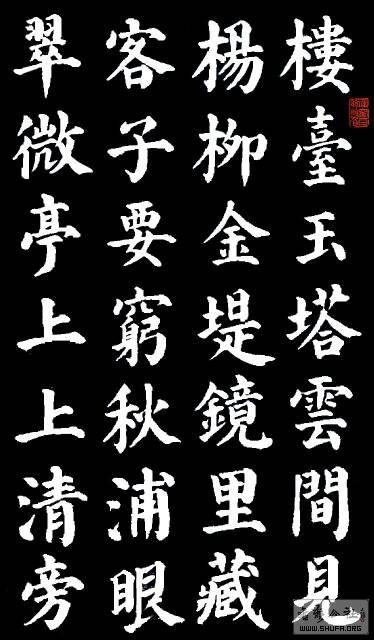 樓臺玉塔雲間見
楊柳金堤鏡里藏
客子要窮秋浦眼
翠微亭上上清旁
WWW.SHUFA.ORG